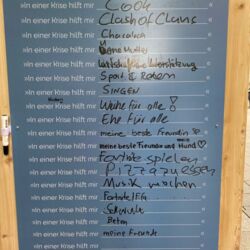 »In einer Krise hilft mir Cook «
»In einer Krise hilft mir Clash of Clans «
»In einer Krise hilft mir «
»In einer Krise hilft mir Deine Mutter «
»In einer Krise hilft mir «
»In einer Krise hilft mir Sport & «
»In einer Krise hilft mir SINGEN «
»In einer Krise hilft mir für alle! «
»In einer Krise hilft mir Ehe für alle «
»In einer Krise hilft mir meine beste Freundin «
»In einer Krise hilft mir meine beste Freundin und Hund ♡
»In einer Krise hilft mir Fortnite spielen
»In einer Krise hilft mir Pizza essen
»In einer Krise hilft mir Musik machen
»In einer Krise hilft mir Fortnite «
»In einer Krise hilft mir «
»In einer Krise hilft mir Beten «
»In einer Krise hilft mir meine Freunde «
»In einer Krise hilft mir «